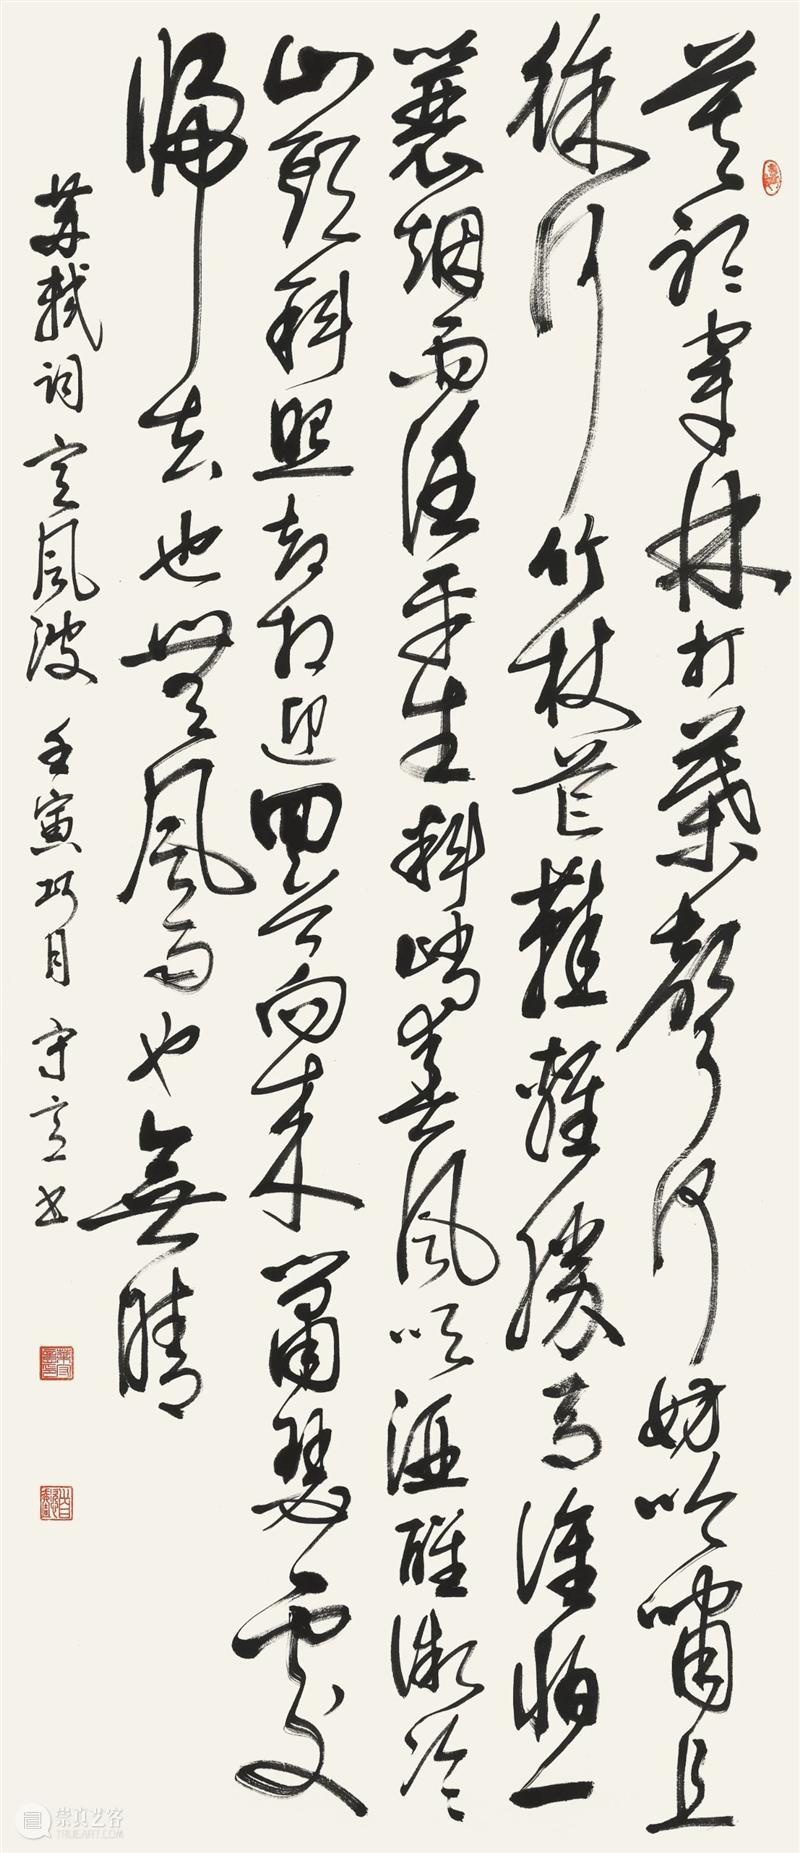 莫聽穿林打葉聲何妨吟嘯且
徐行竹杖芒鞋輕勝馬誰怕一
蓑烟雨任平生料峭春風吹酒醒微冷
山頭斜照却相迎回首向来蕭瑟處
歸去也無風雨也無晴
蘇軾詞定風波 壬寅巧月 守 书
崇真艺客
TRUEART.COM